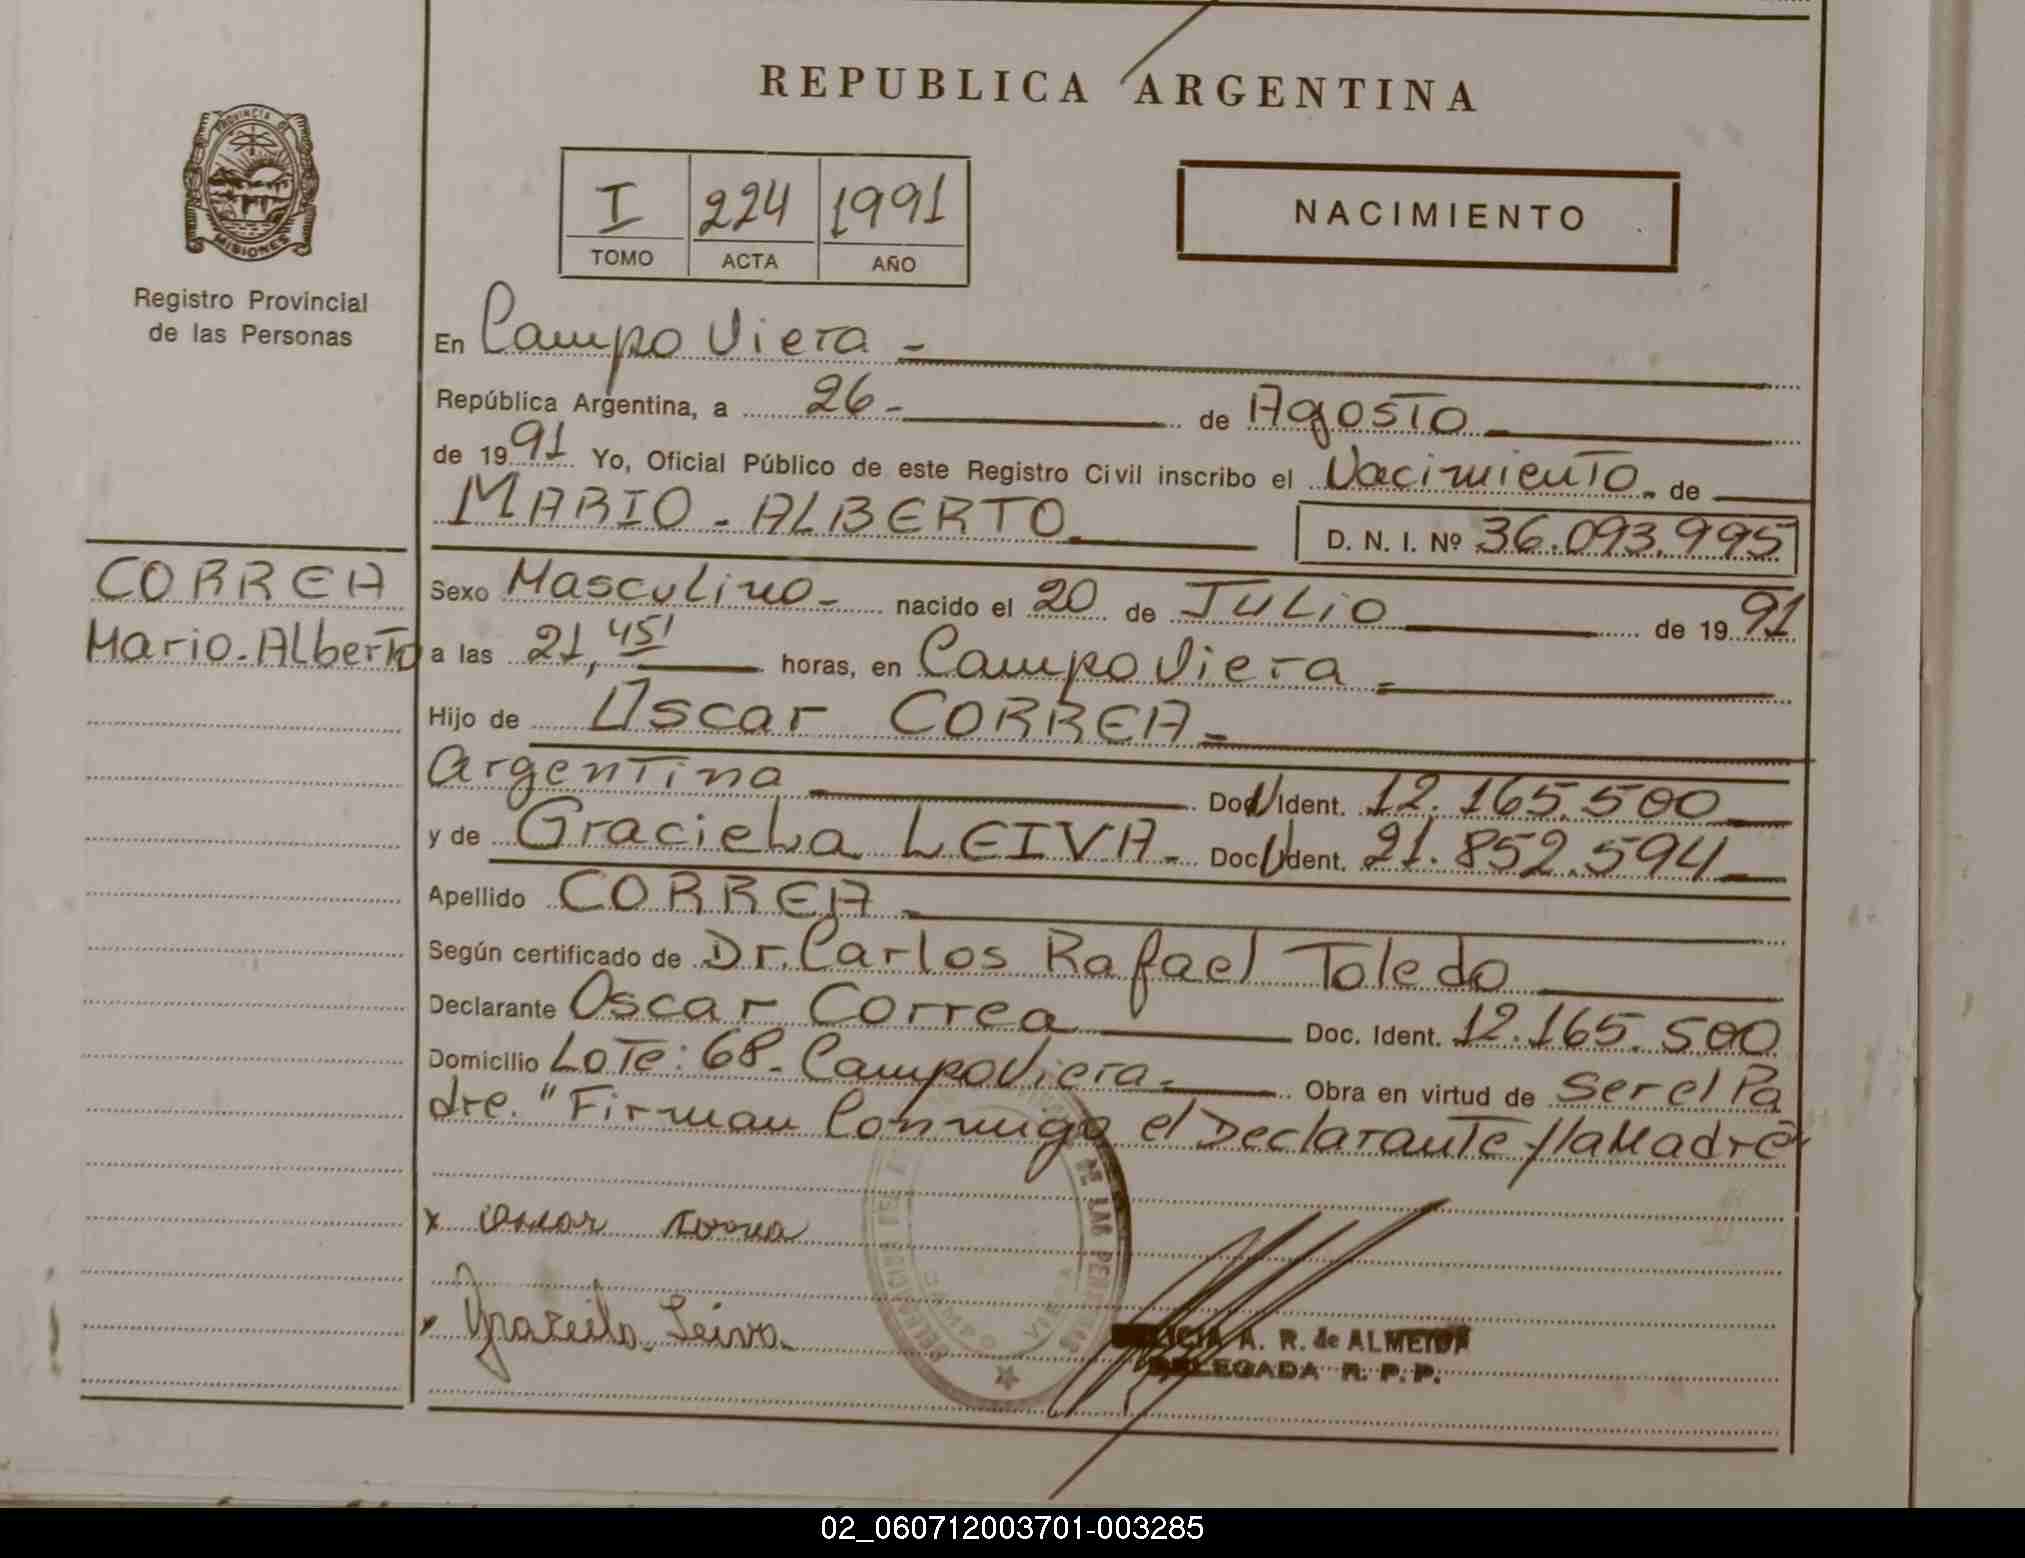 REPUBLICA ARGENTINA
PROVINCIA DE
MISIONES
Registro Provincial
de las Personas
I 224 1991
TOMO ACTA AÑO
NACIMIENTO
En Campo Viera -
República Argentina, a 26- de Agosto
de 1991 Yo, Oficial Público de este Registro Civil inscribo el Nacimiento. de
MARIO - ALBERTO D. N. I. Nº 36.093.995
CORREA
Mario-Alberto
Sexo Masculino- nacido el 20 de Julio de 1991
a las 21,45' horas, en Campo Viera -
Hijo de Oscar CORREA -
argentina Doc. Ident. 12.165.500
y de Graciela LEIVA - Doc. Ident. 21.852.594
Apellido CORREA
Según certificado de Dr. Carlos Rafael Toledo
Declarante Oscar Correa Doc. Ident. 12.165.500
Domicilio Lote: 68- Campo Viera - Obra en virtud de ser el Pa
dre. "Firman Conmigo el Declarante y la Madre"
x Oscar Correa
x Graciela Leiva
DE LAS PERSONAS
VIERA
A. R. de ALMEIDA
DELEGADA R. P. P.
02_060712003701-003285